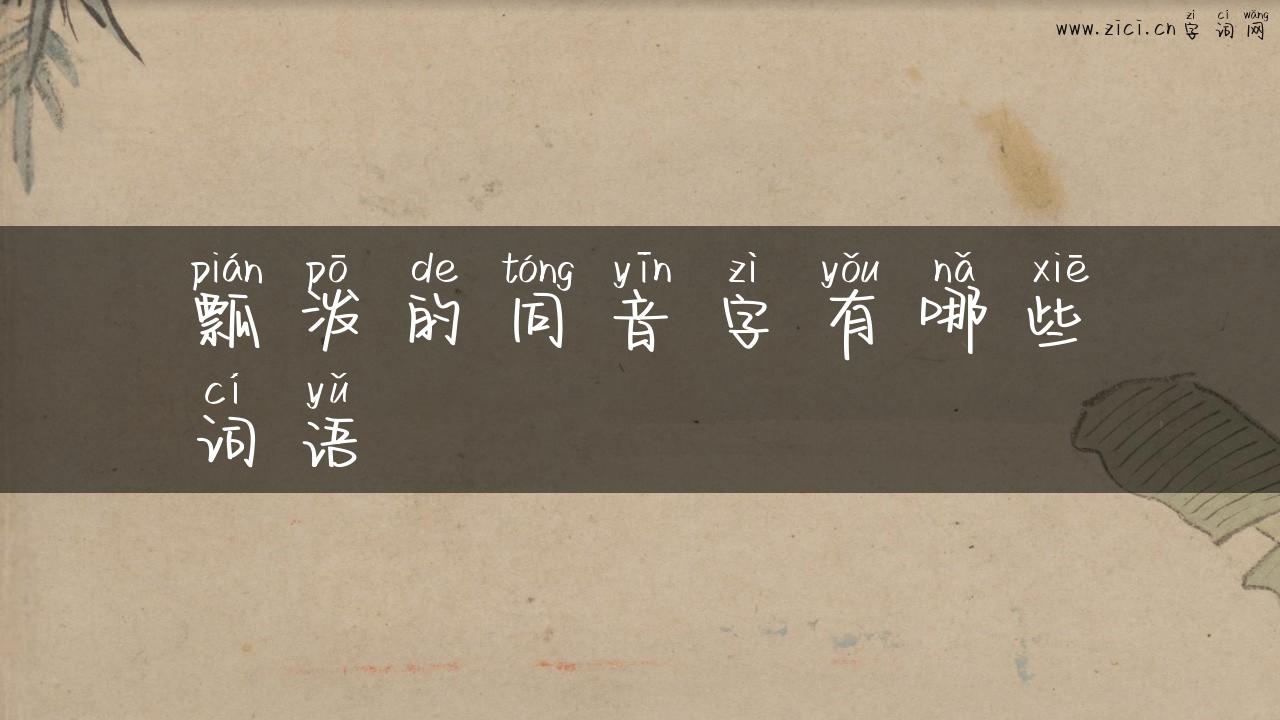 zì cí wǎng
www.zici.cn 字词网
pián pō de tóng yīn zì yǒu nǎ xiē
瓢泼的同音字有哪些
cí yǔ
词语